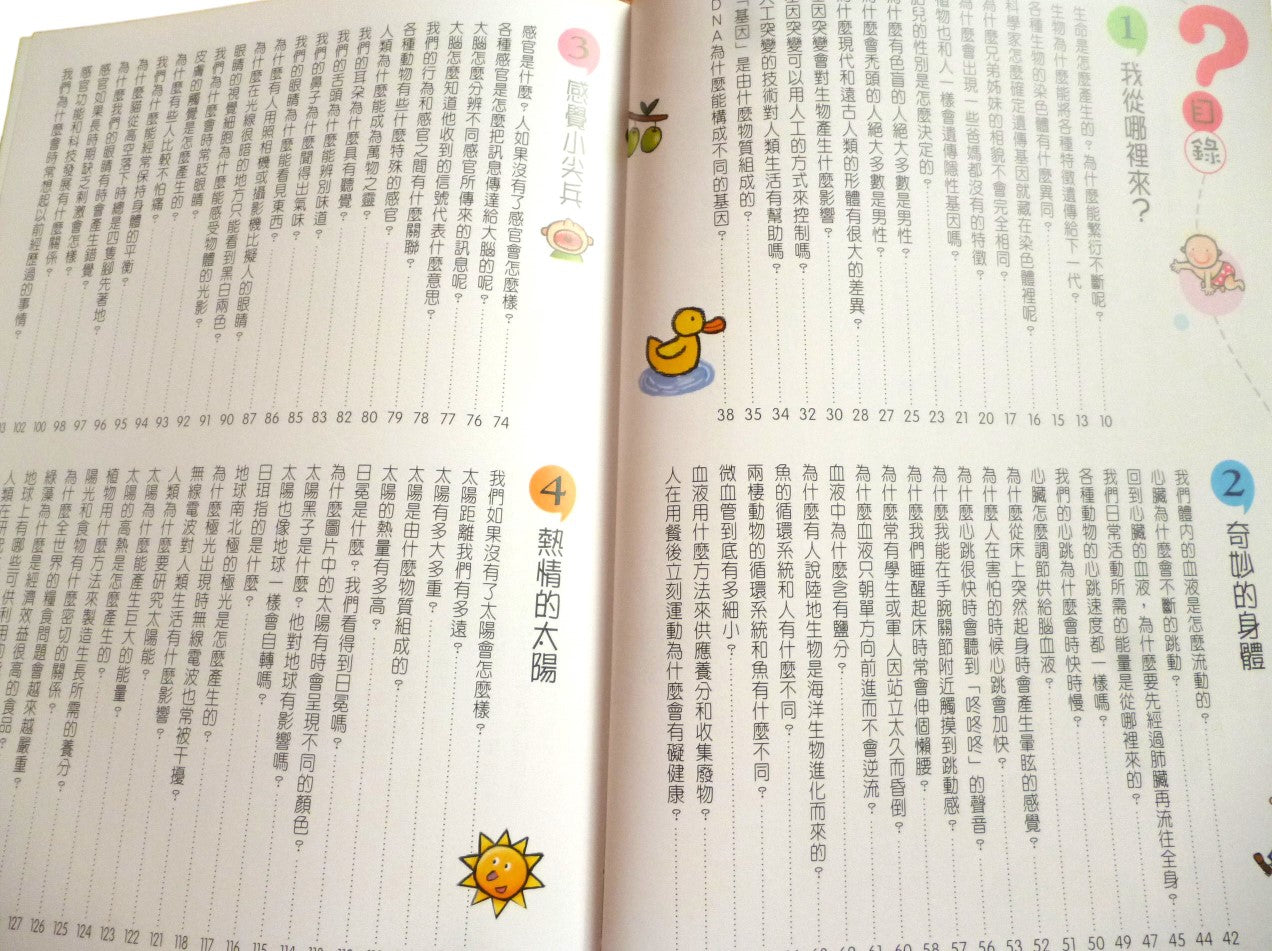 目錄
1
我從哪裡來?
生命是怎麼產生的?為什麼能繁衍不斷呢?
生物為什麼能將各種特徵遺傳給下一代?
各種生物的染色體有什麼異同?
科學家怎麼確定遺傳基因就藏在染色體裡呢?
為什麼兄弟姊妹的相貌不會完全相同?
為什麼會出現一些爸媽都沒有的特徵?
植物也和人一樣會遺傳隱性基因嗎?
胎兒的性別是怎麼決定的?
為什麼有色盲的人絕大多數是男性?
為什麼會禿頭的人絕大多數是男性?
為什麼現代和遠古人類的形體有很大的差異?
基因突變會對生物產生什麼影響?
基因突變可以用人工的方式來控制嗎?
人工突變的技術對人類生活有幫助嗎?
「基因」是由什麼物質組成的?
DNA為什麼能構成不同的基因?
38 35 34 32 30 28 27 25 23 21 20 17 16 15 13 10
2
奇妙的身體
我們體內的血液是怎麼流動的?
心臟為什麼會不斷的跳動?
回到心臟的血液,為什麼要先經過肺臟再流往全身?
我們日常活動所需的能量是從哪裡來的?
各種動物的心跳速度都一樣嗎?
我們的心跳為什麼會時快時慢?
心臟怎麼調節供給腦血液?
為什麼從床上突然起身時會產生暈眩的感覺?
為什麼人在害怕的時候心跳會加快?
為什麼心跳很快時會聽到「咚咚咚」的聲音?
為什麼我能在手腕關節附近觸摸到跳動感?
為什麼我們睡醒起床時常會伸個懶腰?
為什麼常有學生或軍人因站立太久而昏倒?
為什麼血液只朝單方向前進而不會逆流?
血液中為什麼含有鹽分?
為什麼有人說陸地生物是海洋生物進化而來的?
魚的循環系統和人有什麼不同?
兩棲動物的循環系統和魚有什麼不同?
微血管到底有多細小?
血液用什麼方法來供應養分和收集廢物?
人在用餐後立刻運動為什麼會有礙健康?
61 60 58 57 54 52 51 50 49 47 45 44 42
3
感覺小尖兵
感官是什麼?人如果沒有了感官會怎麼樣?
各種感官是怎麼把訊息傳達給大腦的呢?
大腦怎麼分辨不同感官所傳來的訊息呢?
大腦怎麼知道他收到的信號代表什麼意思?
我們的行為和感官之間有什麼關聯?
各種動物有些什麼特殊的感官?
人類為什麼能成為萬物之靈?
我們的耳朵為什麼具有聽覺?
我們的舌頭為什麼能辨別味道?
我們的鼻子為什麼聞得出氣味?
我們的眼睛為什麼能看見東西?
為什麼有人用照相機或攝影機比擬人的眼睛?
為什麼在光線很暗的地方只能看到黑白兩色?
眼睛的視覺細胞為什麼能感受物體的光影?
我們為什麼會時常眨眼睛?
皮膚的觸覺是怎麼產生的?
為什麼有些人比較不怕痛?
我們為什麼能經常保持身體的平衡?
為什麼貓從高空落下時總是四隻腳先著地?
為什麼我們的眼睛有時會產生錯覺?
感官如果長時期缺乏刺激會怎樣?
感官功能和科技發展有什麼關係?
我們為什麼會時常想起以前經歷過的事情?
102 100 98 97 96 95 94 93 92 91 90 87 86 85 83 82 80 79 78 77 76 74
4
熱情的太陽
我們如果沒有了太陽會怎麼樣?
太陽距離我們有多遠?
太陽有多大多重?
太陽是由什麼物質組成的?
太陽的熱量有多高?
日冕是什麼?我們看得到日冕嗎?
為什麼圖片中的太陽有時會呈現不同的顏色?
太陽黑子是什麼?他對地球有影響嗎?
太陽也像地球一樣會自轉嗎?
日珥指的是什麼?
地球南北極的極光是怎麼產生的?
為什麼極光出現時無線電波也常被干擾?
無線電波對人類生活有什麼影響?
人類為什麼要研究太陽能?
太陽為什麼能產生巨大的能量?
太陽的高熱是怎麼產生的?
植物用什麼方法來製造生長所需的養分?
陽光和食物有什麼密切的關係?
為什麼全世界的糧食問題會越來越嚴重?
綠藻為什麼是經濟效益很高的食品?
127 126 125 124 123 122 121 118 117 116 115 114